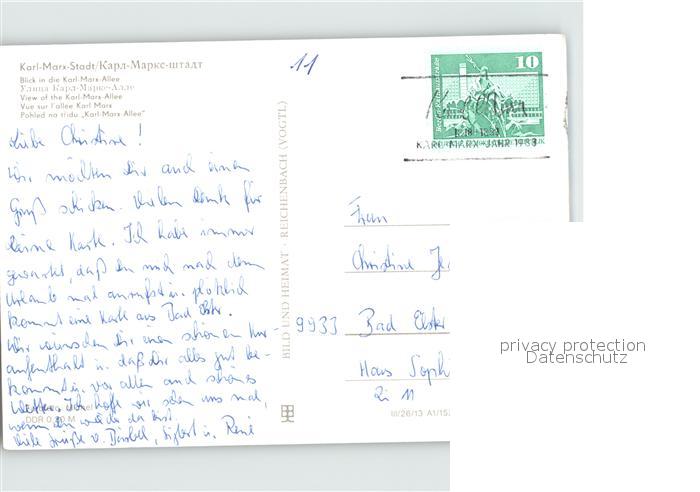 Karl-Marx-Stadt/Карл-Маркс-штадт
Blick in die Karl-Marx-Allee
Улица Карл-Маркс-Алле
View of the Karl-Marx-Allee
Vue sur l'allee Karl Marx
Pohled na třídu „Karl-Marx-Allee"
11
Liebe Christine!
Wir möchten Dir auch einen
Gruß schicken. Vielen Dank für
Deine Karte. Ich habe immer
gewartet, daß Du mich nach dem
Urlaub mal anrufst u. plötzlich
kommt eine Karte aus Bad Elster.
Wir wünschen Dir einen schönen Kur-
aufenthalt u. daß Dir alles gut be-
kommt u. vor allem auch schönes
Wetter. Ich hoffe wir sehen uns mal,
wenn Du wieder da bist.
Viele Grüße v. u. René
DDR 0,20 M
BILD UND HEIMAT · REICHENBACH (VOGTL)
10
KARL-MARX-JAHR 1983
Frau
Christine
9933 Bad Elster
Haus Sophi
Zi 11
III/26/13 A1/15
privacy protection
Datenschutz